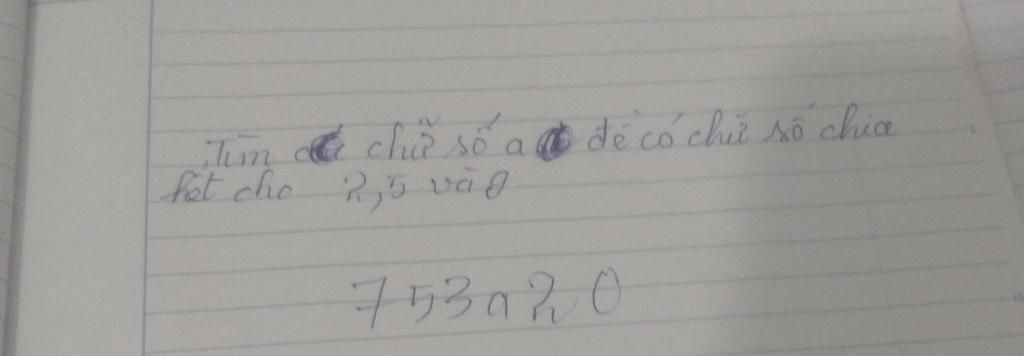 Tìm chữ số a để có chữ số chia
hết cho 2,5 và 9
753a20